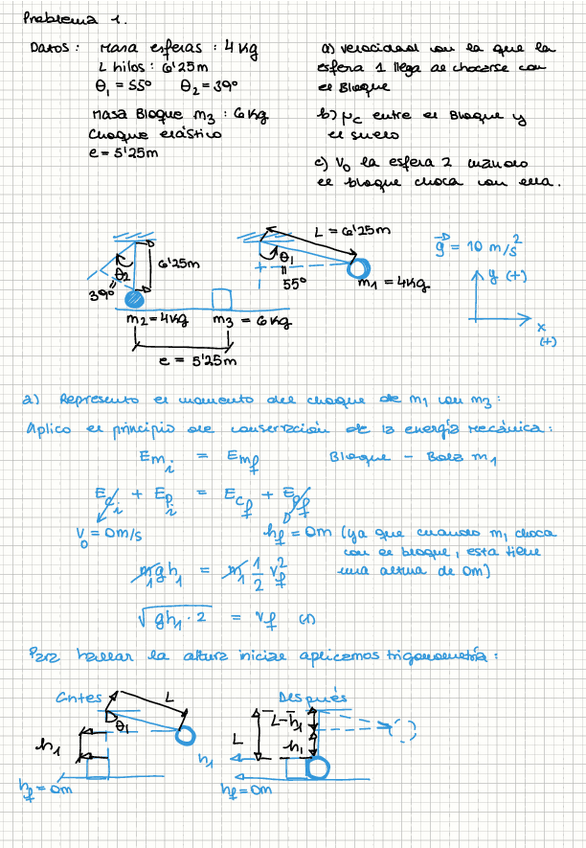 Problema 1.
Datos: Masa esferas: 4 Kg
L hilos: 6'25m
θ₁ = 55º θ₂ = 39º
Masa Bloque m₃: 6 Kg
Choque elástico
e = 5'25m
a) velocidad con la que la
esfera 1 llega al chocarse con
el Bloque
b) μc entre el Bloque y
el suelo
c) V₀ la esfera 2 cuando
el bloque choca con ella.
θ₂
39º
6'25m
m₂ = 4Kg m₃ = 6 Kg
e = 5'25m
L = 6'25m
θ₁
55º
m₁ = 4Kg
g = 10 m/s²
y (+)
x
(+)
a) Represento el momento del choque de m₁ con m₃:
Aplico el principio de conservación de la energía mecánica:
Em i = Em f Bloque - Bola m₁
Ec i + Ep i = Ec f + Ep f
V₀ = 0m/s
h f = 0m (ya que cuando m₁ choca
con el bloque, esta tiene
una altura de 0m)
m₁gh₁ = m₁ 1/2 v f²
√gh₁·2 = v f (1)
Para hallar la altura inicial aplicamos trigonometría:
Antes
L
θ₁
h₁
h f = 0m
Después
L-h₁
L
h₁
h₁
h f = 0m